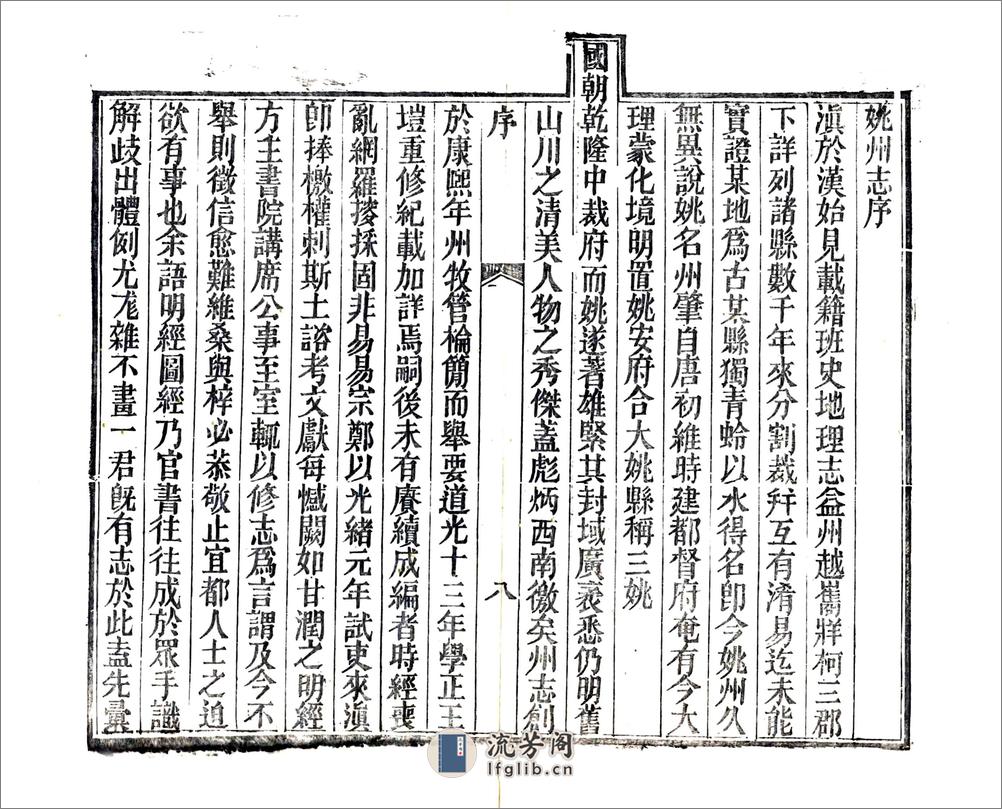 姚州志序
滇於漢始見載籍班史地理志益州越雟牂柯三郡
下詳列諸縣數千年來分割裁幷互有淆易迄未能
實證某地爲古某縣獨青蛉以水得名卽今姚州久
無異說姚名州肇自唐初維時建都督府奄有今大
理蒙化境明置姚安府合大姚縣稱三姚
國朝乾隆中裁府而姚遂著雄緊其封域廣袤悉仍明舊
山川之清美人物之秀傑蓋彪炳西南徼矣州志創
序
八
於康熙年州牧管棆簡而舉要道光十三年學正王
塏重修紀載加詳焉嗣後未有賡續成編者時經喪
亂網羅掞採固非易易宗鄭以光緒元年試吏來滇
卽捧檄權刺斯土諮考文獻每憾闕如甘潤之明經
方主書院講席公事至室輒以修志爲言謂及今不
舉則徵信愈難維桑與梓必恭敬止宜都人士之迫
欲有事也余語明經圖經乃官書往往成於眾手識
解歧出體例尤尨雜不畫一君旣有志於此盍先彙
流芳阁
lfglib.cn